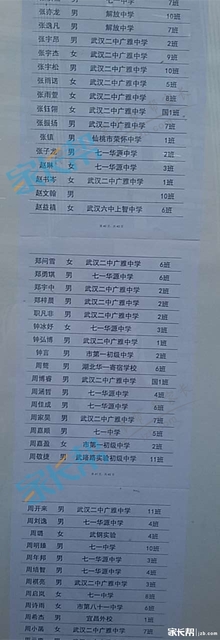 张亦龙 男 解放中学 10班
张逸凡 男 解放中学 7班
张宇昂 男 武汉二中广雅中学 2班
张宇杰 女 武汉二中广雅中学 9班
张宇松 男 武汉二中广雅中学 10班
张雨诺 女 武汉二中广雅中学 5班
张雨萱 女 武汉二中广雅中学 8班
张钰翎 女 武汉二中广雅中学 国1班
张振扬 男 武汉二中广雅中学 7班
张镇 男 仙桃市荣怀中学 1班
张子龙 男 七一华源中学 2班
赵琳 女 七一华源中学 3班
赵书岑 女 武汉二中广雅中学 1班
赵文翰 男 10班
赵益禛 女 武汉六中上智中学 6班
郑问雪 女 武汉二中广雅中学 6班
郑勇琪 男 七一华源中学 6班
郑宇中 男 武汉二中广雅中学 2班
郑梓晨 男 武汉二中广雅中学 2班
职凡非 男 武汉二中广雅中学 2班
钟冰妤 女 七一华源中学 3班
钟弘博 男 武汉二中广雅中学 1班
钟言 男 市第一初级中学 2班
周 男 湖北华一寄宿学校 6班
周博睿 男 武汉二中广雅中学 国1班
周涵哲 男 七一华源中学 4班
周佳成 男 七一华源中学 6班
周家昊 男 武汉二中广雅中学 7班
周嘉顺 男 七一中学 5班
周嘉盈 女 市第一初级中学 2班
周敬捷 男 武珞路实验初级中学 11班
周开来 男 武汉二中广雅中学 11班
周刘逸 男 七一华源中学 4班
周璐 女 武钢实验 4班
周明臻 男 七一中学 10班
周年邦 男 七一华源中学 3班
周培智 男 七一华源中学 4班
周祺亮 男 武汉二中广雅中学 3班
周启岚 女 七一华源中学 8班
周诗雨 女 市第八十一中学 6班
周希杰 男 宜昌外校 1班
周小岚 女 武汉二中广雅中学 7班
家长帮
家长帮
家长帮 jzb.com